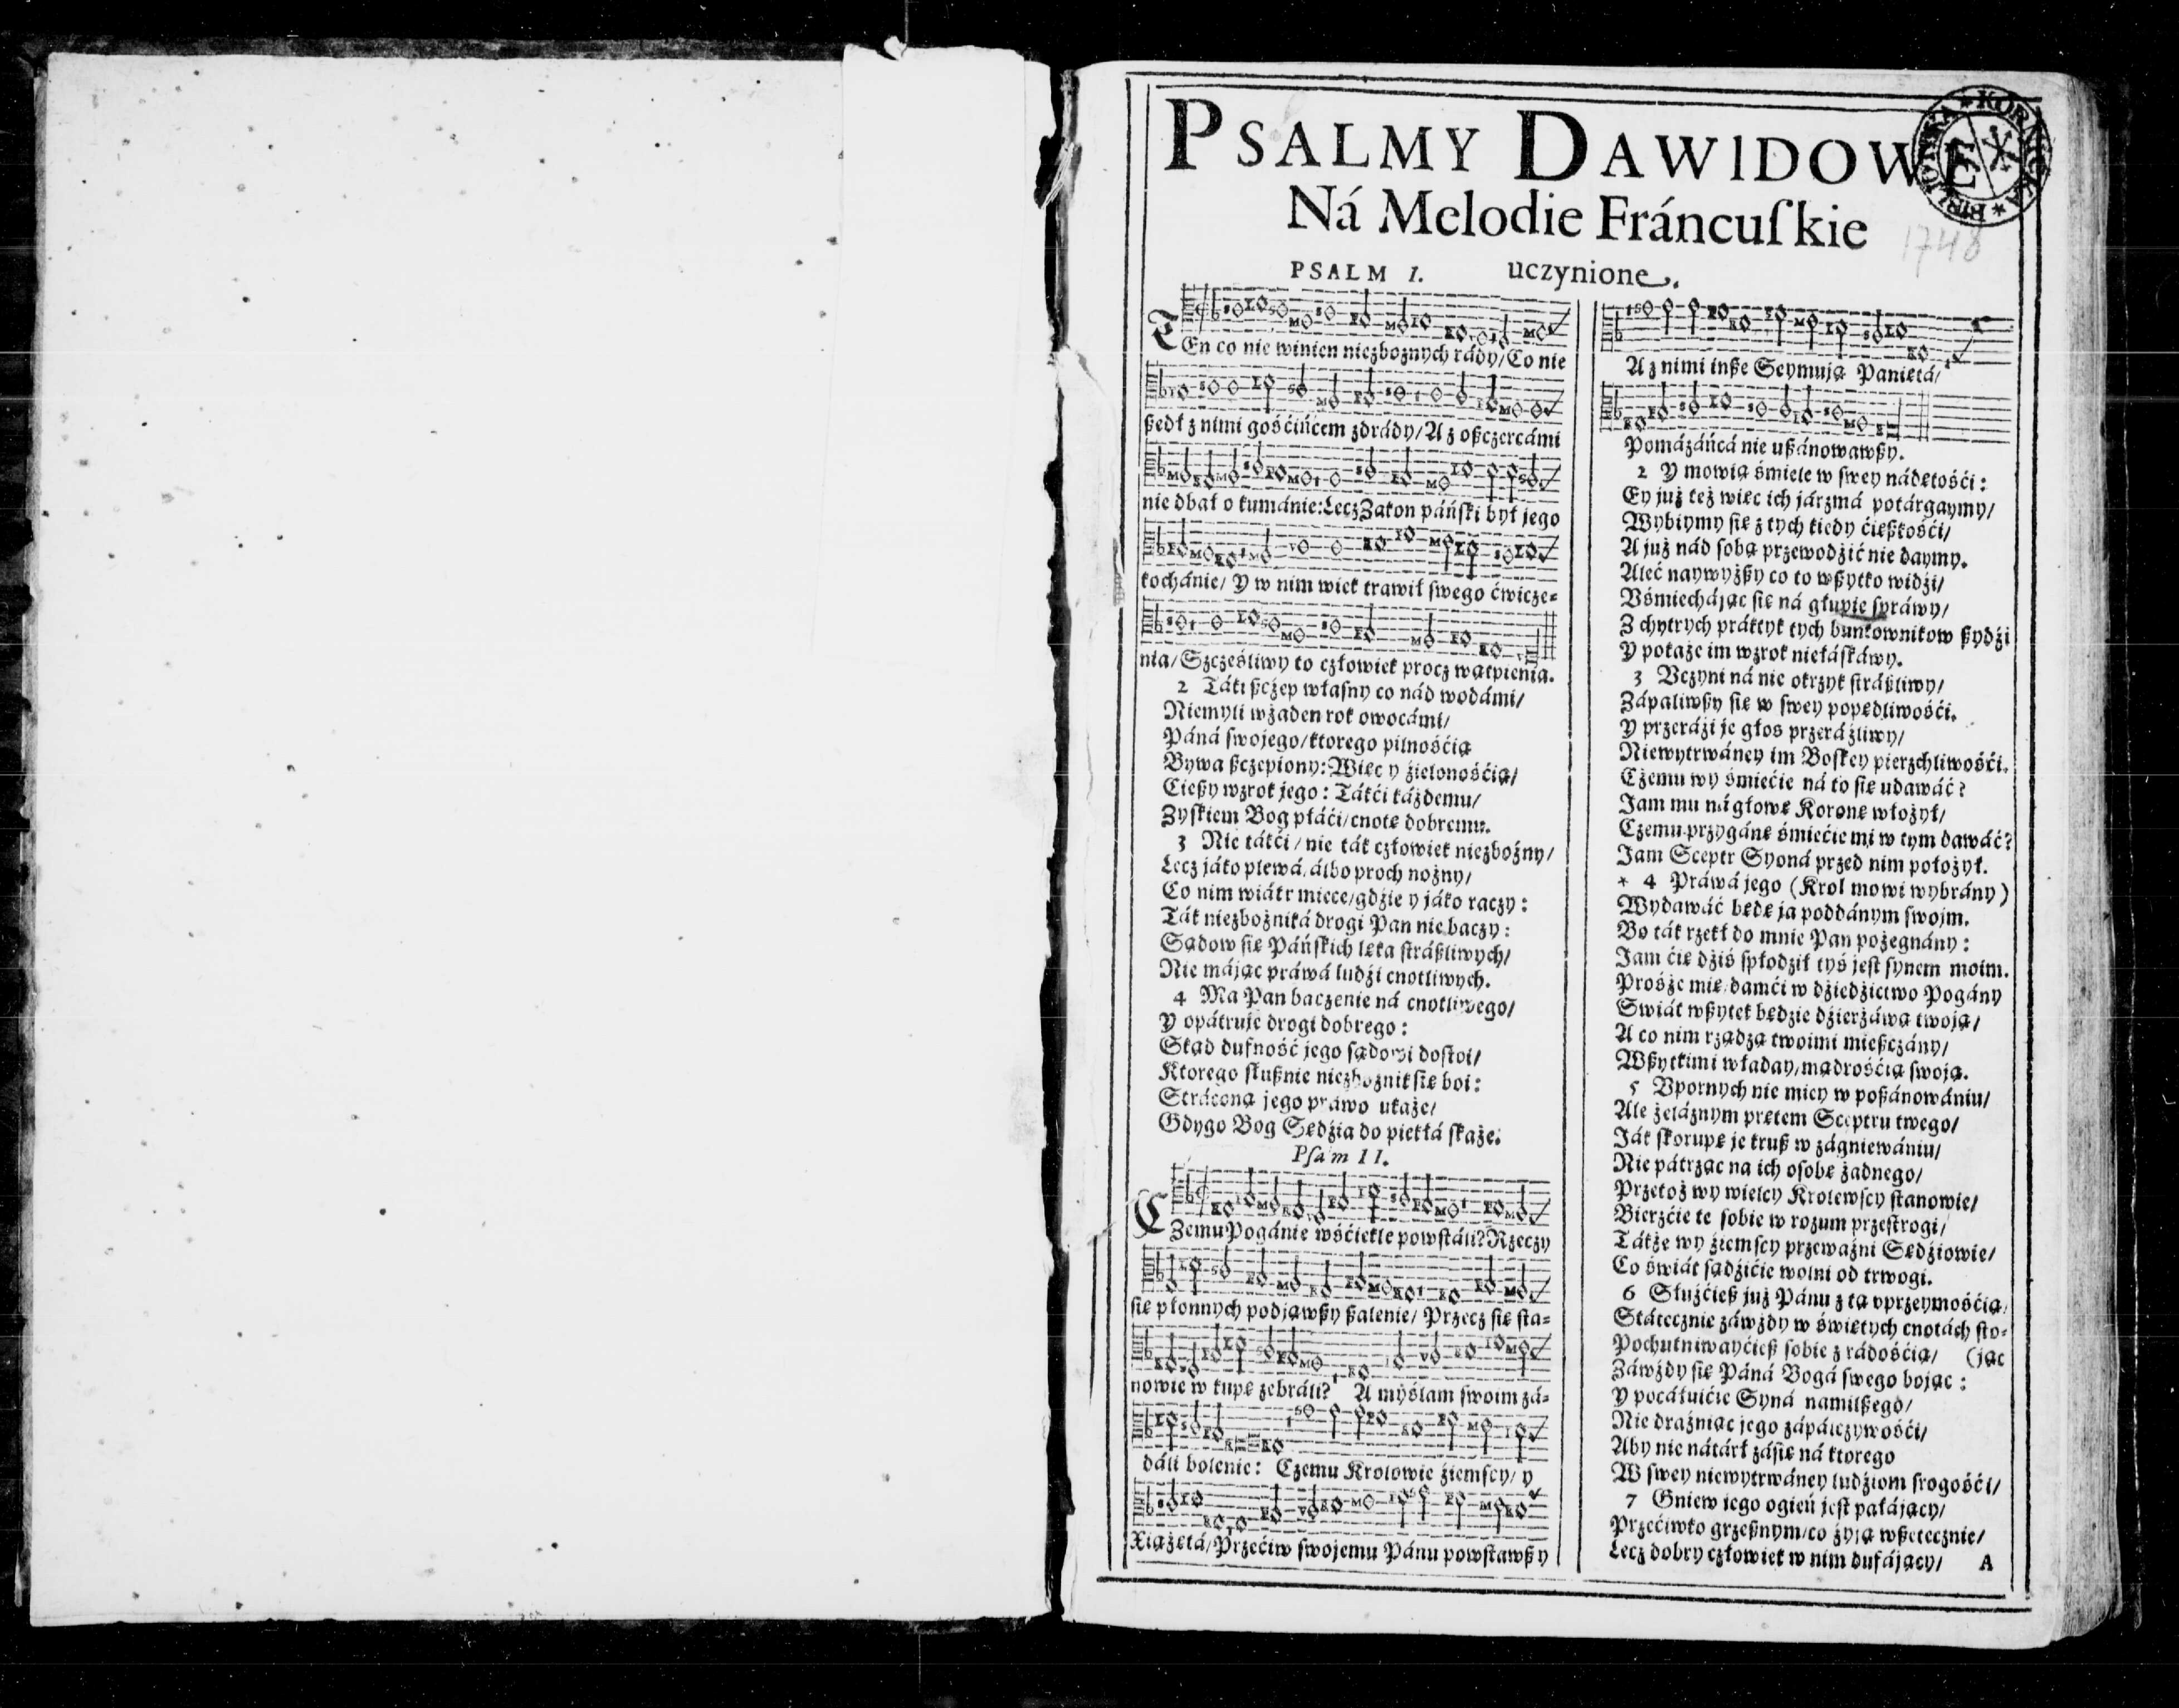 PSALMY DAWIDOWE
Ná Melodie Fráncuſkie
PSALM I. uczynione.
TEn co nie winien niezbożnych rády/ Co nie
ßedł z nimi gośćińcem zdrády/ A z oßczercámi
nie dbał o kumánie: Lecz Zakon páńſki był jego
kochánie/ Y w nim wiek trawił ſwego ćwicze=
nia/ Szczęśliwy to człowiek procz wątpienia.
2 Táki ßczep właſny co nád wodámi/
Niemyli w żaden rok owocámi/
Páná ſwojego/ ktorego pilnośćią
Bywa ßczepiony: Więc y źielonośćią/
Cießy wzrok jego: Tákći káżdemu/
Zyſkiem Bog płáći/ cnotę dobremu.
3 Nie tákći / nie ták człowiek niezbożny/
Lecz jáko plewá, álbo proch nożny/
Co nim wiátr miece/ gdźie y jáko raczy:
Ták niezbożniká drogi Pan nie baczy:
Sądow ſię Páńſkich lęka ſtráßliwych/
Nie májąc práwá ludźi cnotliwych.
4 Ma Pan baczenie ná cnotliwego/
Y opátruje drogi dobrego:
Skąd dufność jego ſądowi doſtoi/
Ktorego ſłußnie niezbożnik ſię boi:
Stráconą jego práwo ukaże/
Gdy go Bog Sędźia do piekłá ſkaże.
Pſalm II.
CZemu Pogánie wśćiekle powſtáli? Rzeczy
ſię płonnych podjąwßy ßalenie/ Przecz ſię ſta=
nowie w kupę zebráli? A myślam ſwoim zá=
dáli bolenie: Czemu Krolowie źiemſcy/ y
Xiążętá/ Przećiw ſwojemu Pánu powſtawßy
A z nimi inße Seymują Paniętá/
Pomázáńcá nie ußánowawßy.
2 Y mowią śmiele w ſwey nádętośći:
Ey już też więc ich járzmá potárgaymy/
Wybiymy ſię z tych kiedy ćięßkośći/
A już nád ſobą przewodźić nie daymy.
Aleć naywyżßy co to wßytko widźi/
Vśmiechájąc ſię ná głupie ſpráwy/
Z chytrych práktyk tych buntownikow ßydźi
Y pokaże im wzrok niełáſkáwy.
3 Vczyni ná nie okrzyk ſtráßliwy/
Zápaliwßy ſię w ſwey popędliwośći.
Y przeráźi je głos przeráźliwy/
Niewytrwáney im Boſkey pierzchliwośći.
Czemu wy śmiećie ná to ſię udawáć?
Jam mu ná głowę Koronę włożył/
Czemu przygánę śmiećie mi w tym dawáć?
Jam Sceptr Syoná przed nim położył.
* 4 Práwá jego (Krol mowi wybrány)
Wydawáć będę ja poddánym ſwojm.
Bo ták rzekł do mnie Pan pożegnány:
Jam ćię dźiś ſpłodził tyś jeſt ſynem moim.
Prośże mię/ damći w dźiedźictwo Pogány
Swiát wßytek będzie dźierżáwą twoją/
A co nim rządzą twoimi mießczány/
Wßytkimi właday/ mądrośćią ſwoją.
5 Vpornych nie miey w poßánowániu/
Ale żeláznym prętem Sceptru twego/
Ják ſkorupę je kruß w zágniewániu/
Nie pátrząc na ich oſobę żadnego/
Przetoż wy wielcy Krolewſcy ſtanowie/
Bierzćie te ſobie w rozum przeſtrogi/
Tákże wy źiemſcy przeważni Sędźiowie/
Co świát ſądźićie wolni od trwogi.
6 Służćieß już Pánu z tą vprzeymośćią/
Státecznie záwżdy w świętych cnotách ſto=
Pochutniwayćieß ſobie z rádośćią/ (jąc
Záwżdy ſię Páná Bogá ſwego bojąc:
Y pocáłuićie Syná namilßego/
Nie draźniąc jego zápálczywośći/
Aby nie nátárł záſię ná ktorego
W ſwey niewytrwáney ludźiom ſrogośći/
7 Gniew jego ogień jeſt pałájący/
Przećiwko grzeßnym/ co żyją wßetecznie/
Lecz dobry człowiek w nim dufájący/ A
BIBLIOTEKA * KÓRNICKA *
1748